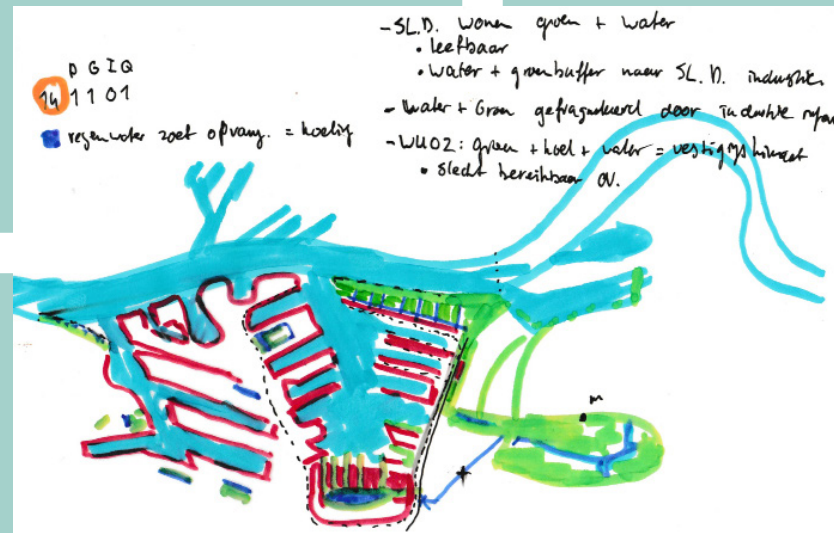 P G I Q
14 1 1 0 1
regenwater zoet opvang. = koeling
- SL.D. wonen groen + water
• leefbaar
• water + groenbuffer naar SL. D. industrie
- Water + Groen gefragmenteerd door industrie
- WUO2: groen + koel + water = vestigingsklimaat
• slecht bereikbaar OV.
M